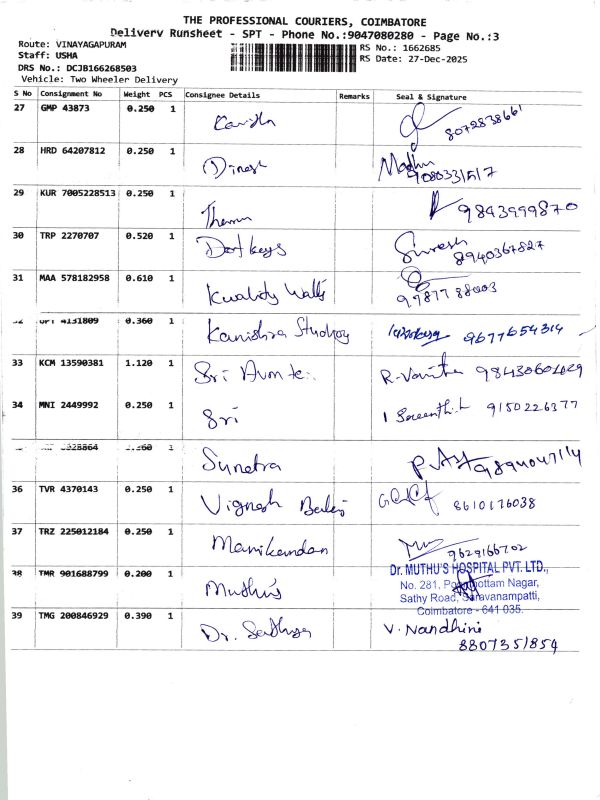 THE PROFESSIONAL COURIERS, COIMBATORE
Delivery Runsheet - SPT - Phone No.:9047080280 - Page No.:3
Route: VINAYAGAPURAM
RS No.: 1662685
Staff: USHA
RS Date: 27-Dec-2025
DRS No.: DCJB166268503
Vehicle: Two Wheeler Delivery
S No Consignment No Weight PCS Consignee Details Remarks Seal & Signature
27 GMP 43873 0.250 1 8072838661
28 HRD 64207812 0.250 1 Dinesh Madhu
9080331517
29 KUR 7005228513 0.250 1 9843999870
30 TRP 2270707 0.520 1 Suresh
8940367827
31 MAA 578182958 0.610 1 Kwality Walls
9987788003
4131809 0.360 1 Kanishra 9677654314
33 KCM 13590381 1.120 1 Sri R. Vanitha
34 MNI 2449992 0.250 1 Sri 9150226377
1 Sunetra
36 TVR 4370143 0.250 1 Vignesh 8610176038
37 TRZ 225012184 0.250 1 Manikandan 9629166702
38 TMR 901688799 0.200 1 Muthu's
Dr. MUTHU'S HOSPITAL PVT. LTD.,
No. 281, Nagar,
Sathy Road, Saravanampatti,
Coimbatore - 641 035.
39 TMG 200846929 0.390 1 Dr. Sathya V. Nandhini
8807351854